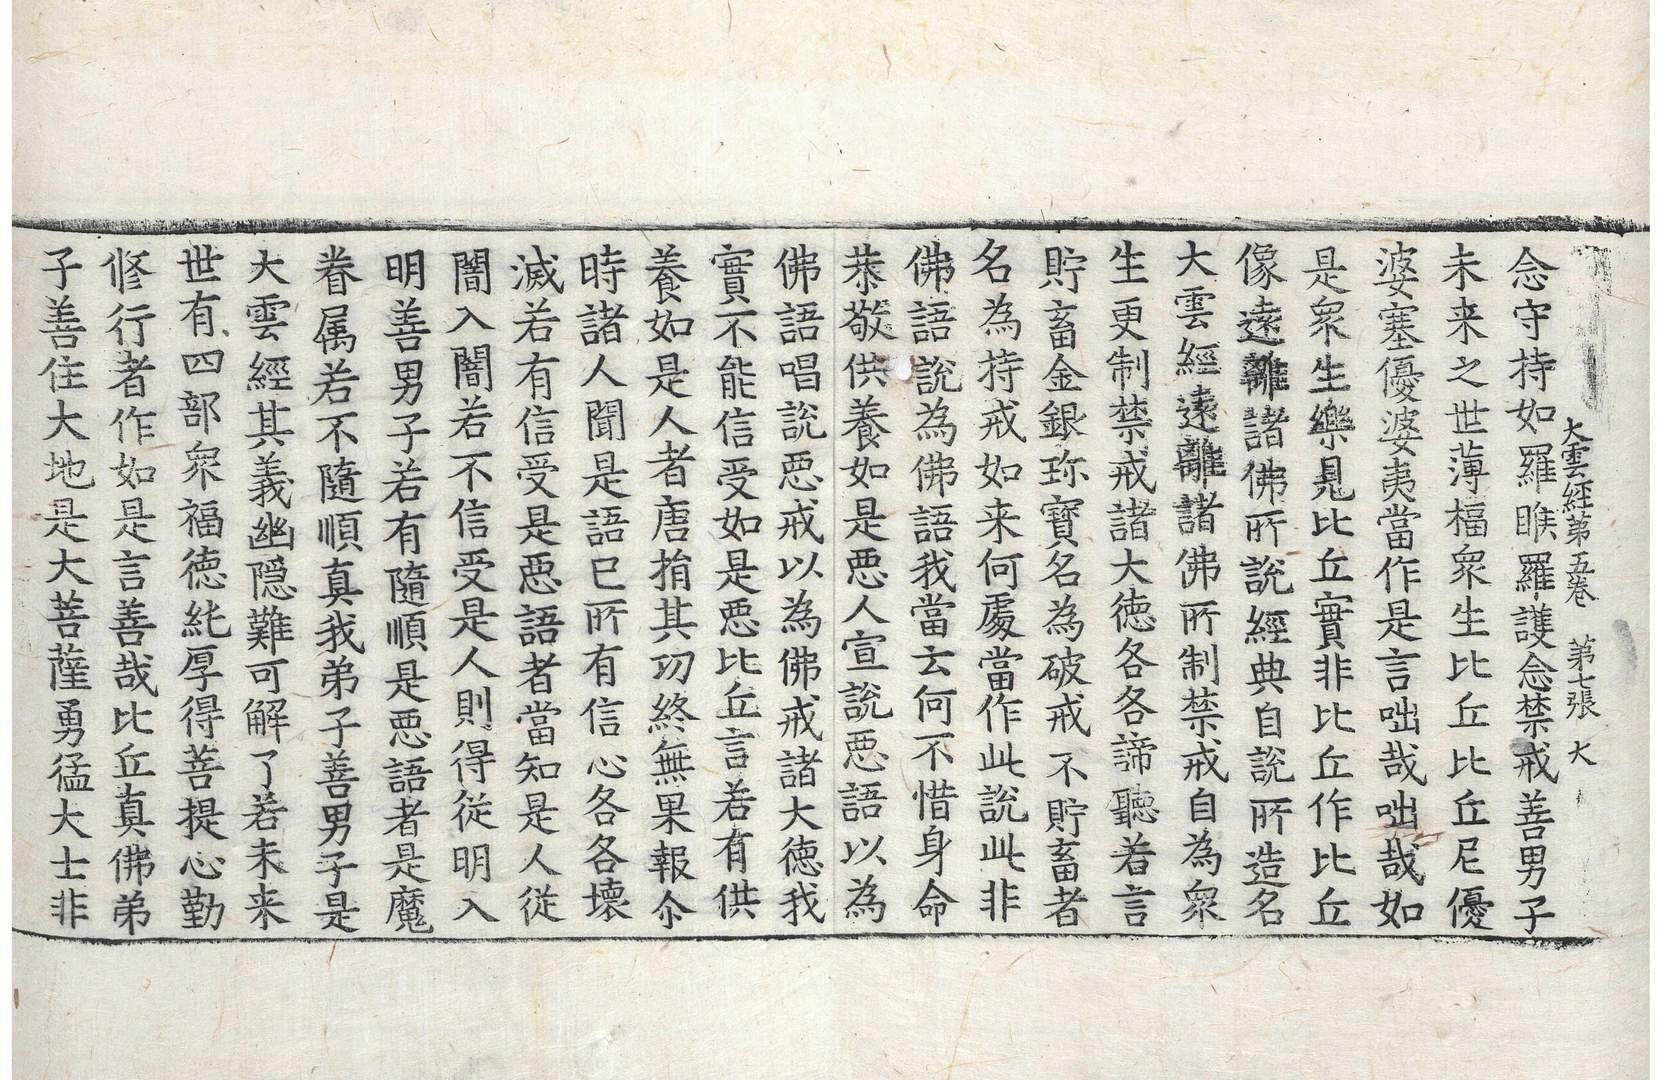 大雲經第五卷 第七張 大
念守持如羅睺羅護念禁戒善男子
未来之世薄福衆生比丘比丘尼優
婆塞優婆夷當作是言咄哉咄哉如
是衆生樂見比丘實非比丘作比丘
像遠離諸佛所說經典自說所造名
大雲經遠離諸佛所制禁戒自為衆
生更制禁戒諸大徳各各諦聽若言
貯畜金銀珎寶名為破戒不貯畜者
名為持戒如来何處當作此說此非
佛語說為佛語我當云何不惜身命
恭敬供養如是惡人宣說惡語以為
佛語唱說惡戒以為佛戒諸大徳我
實不能信受如是惡比丘言若有供
養如是人者唐捐其功終無果報尒
時諸人聞是語已所有信心各各壞
滅若有信受是惡語者當知是人從
闇入闇若不信受是人則得從明入
明善男子若有隨順是惡語者是魔
眷属若不隨順真我弟子善男子是
大雲經其義幽隱難可解了若未来
世有四部衆福徳純厚得菩提心勤
修行者作如是言善哉比丘真佛弟
子善住大地是大菩薩勇猛大士非